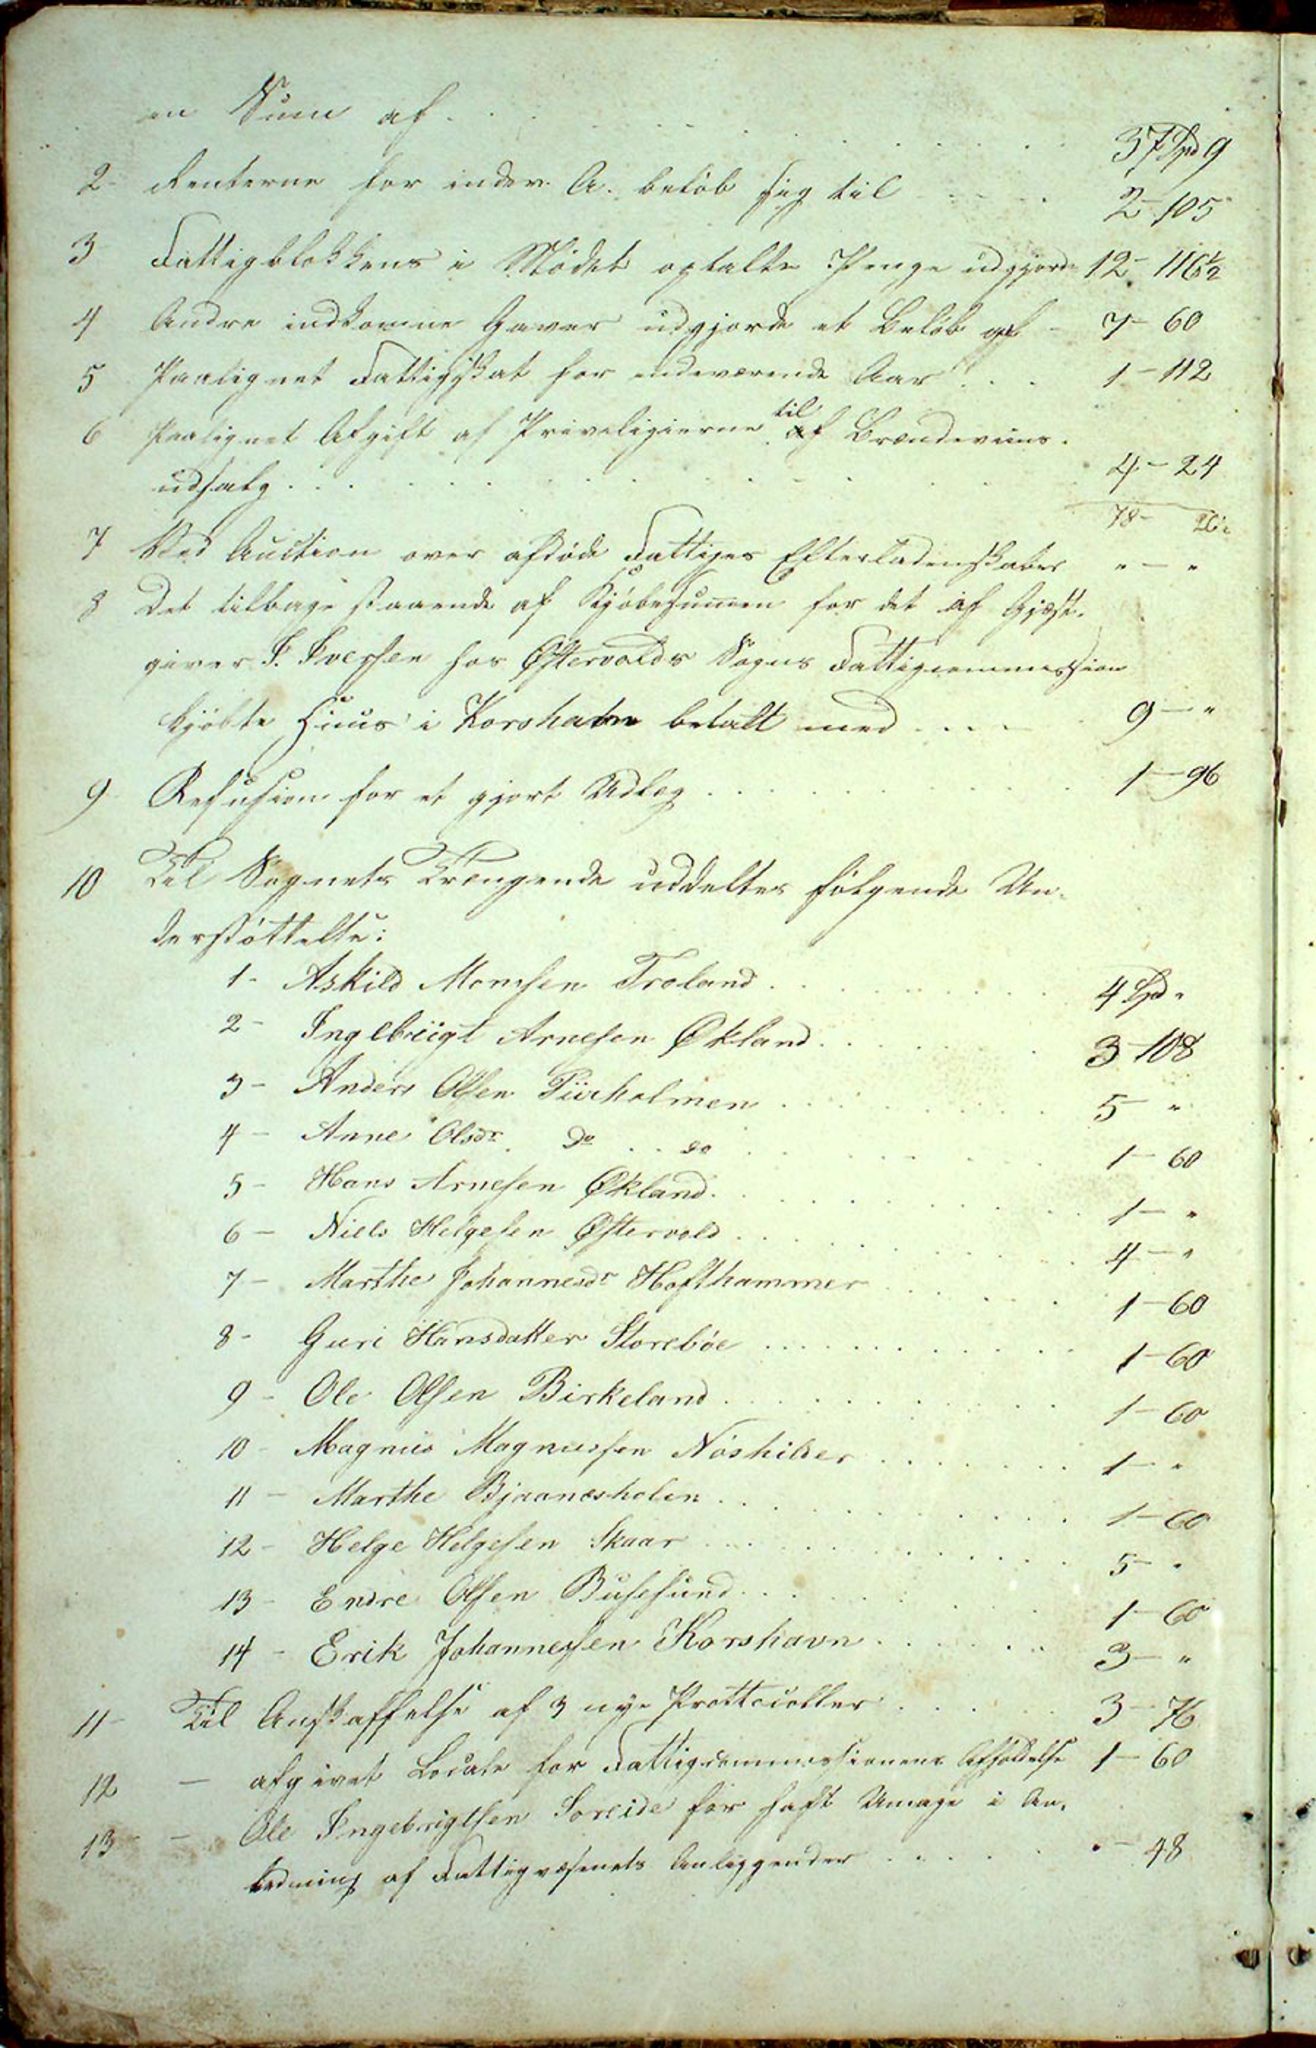 en Sum af . . . . . . 37 Spd 9
2 - Renterne for indev. A. beløb sig til . . . . 2 - 105
3 Fattigblokkens i Mødet optalte Penge udgjorde 12 - 116½
4 Andre indkomne Gaver udgjorde et Beløb af - 7 - 60
5 Paalignet Fattigskat for indeværende Aar . . . 1 - 112
6 Paalignet Afgift af Priveligierne til af Brændeviins-
udsalg . . . . . . 4 - 24
78 -
7 Ved Auction over afdøde Fattiges Efterladenskaber " - "
8 Det tilbagestaaende af Kjøbesummen for det af Gjæst-
giver I. Iversen hos Østervolds Sogns Fattigcommission
kjøbte Huus i Korshavn betalt med . . . . 9 - "
9 Refusion for et gjort Udlæg . . . . . . 1 - 96
10 Til Sognets Trængende uddeltes følgende Un-
derstøttelse:
1 - Askild Monsen Troland . . . . . . 4 Spd "
2 - Ingebrigt Arnesen Økland . . . . . . 3 - 108
3 - Anders Olsen Tiirholmen . . . . . . 5 - "
4 - Anne Olsdr. do . . do . . . . . . 1 - 60
5 - Hans Arnesen Økland . . . . . . 1 - "
6 - Niels Helgesen Østervold . . . . . . 4 - "
7 - Marthe Johannesdr Hofthammer . . . . . . 1 - 60
8 - Guri Hansdatter Storebøe . . . . . . 1 - 60
9 - Ole Olsen Birkeland . . . . . . 1 - 60
10 - Magnus Magnussen Nøshilder . . . . . . 1 - "
11 - Marthe Bjaanæsholen . . . . . . 1 - 60
12 - Helge Helgesen Skaar . . . . . . 5 - "
13 - Endre Olsen Busesund . . . . . . 1 - 60
14 - Erik Johannessen Korshavn . . . . . . 3 - "
11 - Til Anskaffelse af 3 nye Prottocoller . . . . . 3 - 76
12 - afgivet Locale for Fattigcommissionens Afholdelse 1 - 60
13 - Ole Ingebrigtsen Soreide for haft Umage i An-
ledning af Fattigvæsenets Anliggender . . . . . " - 48